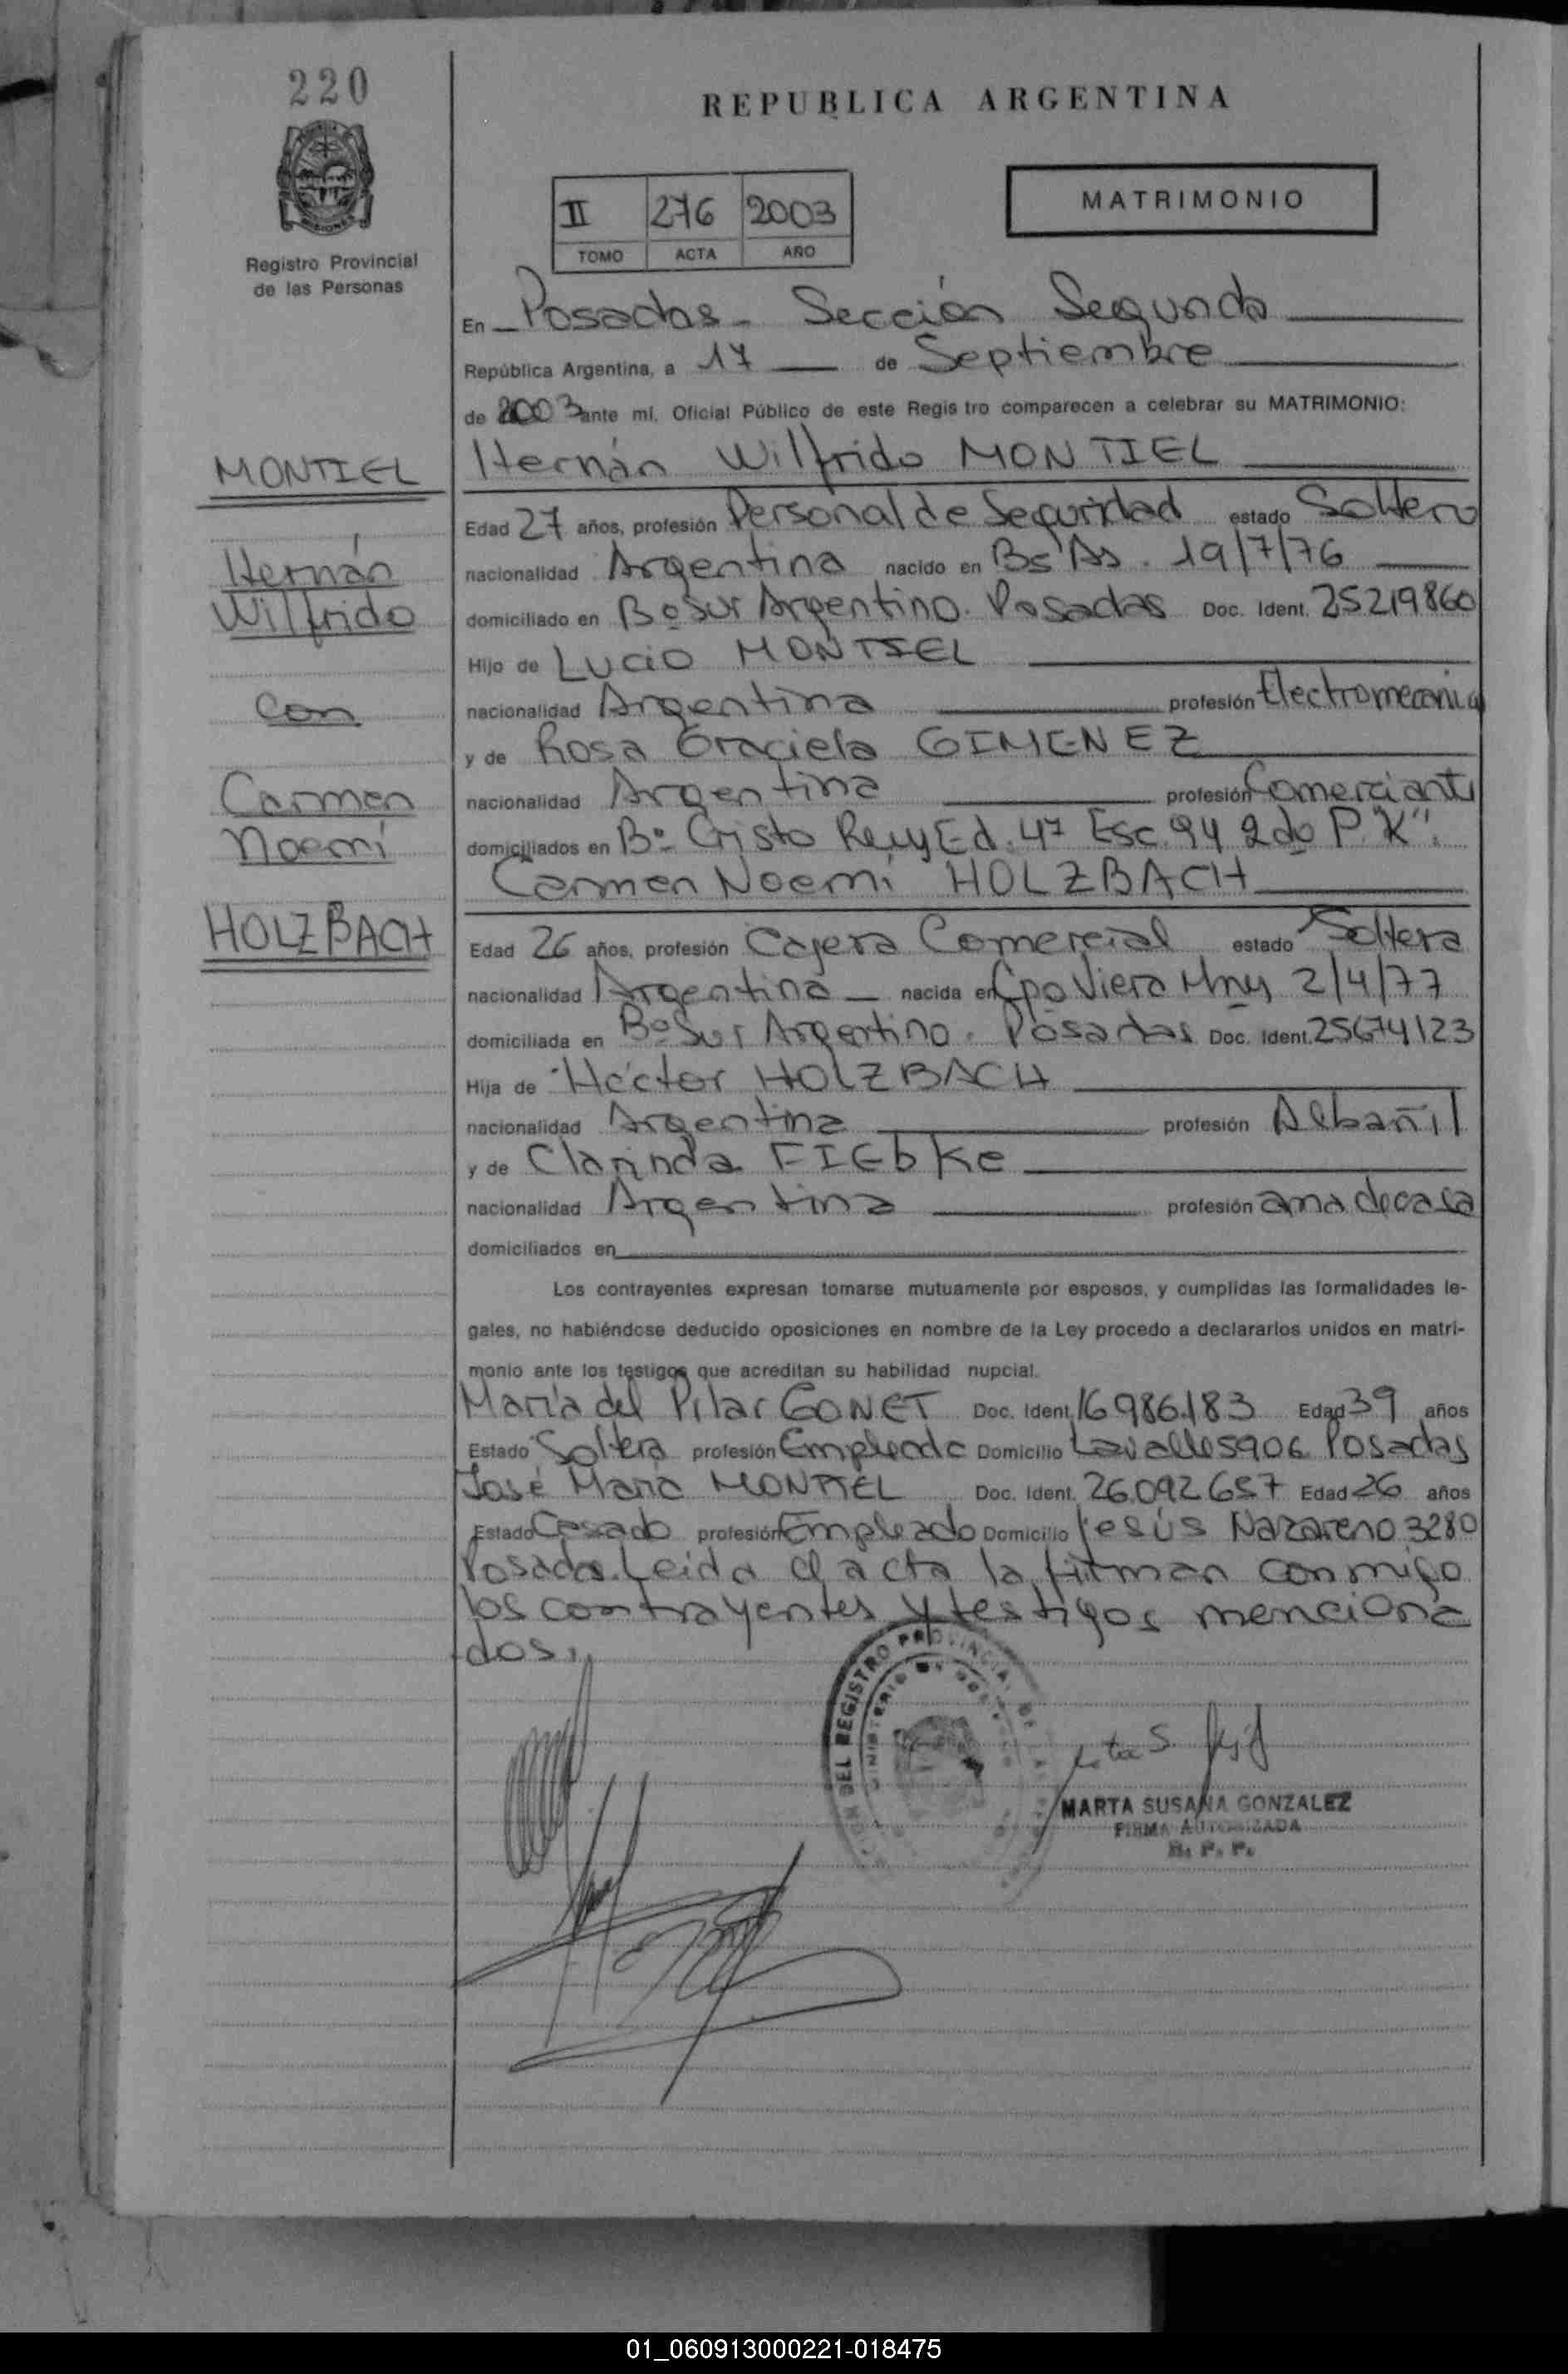 220
REPUBLICA ARGENTINA
II 276 2003
TOMO ACTA AÑO
MATRIMONIO
Registro Provincial
de las Personas
En Posadas - Sección Segunda
República Argentina, a 17 de Septiembre
de 2003 ante mí, Oficial Público de este Regis tro comparecen a celebrar su MATRIMONIO:
MONTIEL
Hernán Wilfrido MONTIEL
Edad 27 años, profesión Personal de Seguridad estado Soltero
Hernán
nacionalidad Argentina nacido en Bs As. 19/7/76
Wilfrido
domiciliado en Bº Sur Argentino. Posadas Doc. Ident. 25219860
Hijo de Lucio MONTIEL
con
nacionalidad Argentina profesión Electromecánica
y de Rosa Graciela GIMENEZ
Carmen
nacionalidad Argentina profesión Comerciante
Noemí
domiciliados en Bº Cristo Rey Ed. 47 Esc. 94 2do P. "K".
Carmen Noemi HOLZBACH
HOLZBACH
Edad 26 años, profesión Cajera Comercial estado Soltera
nacionalidad Argentina nacida en Cpo Viera Mnes 2/4/77
domiciliada en Bº Sur Argentino. Posadas Doc. Ident. 25674123
Hija de Héctor HOLZBACH
nacionalidad Argentina profesión Albañil
y de Clarinda FIEbKe
nacionalidad Argentina profesión ama de casa
domiciliados en
Los contrayentes expresan tomarse mutuamente por esposos, y cumplidas las formalidades le-
gales, no habiéndose deducido oposiciones en nombre de la Ley procedo a declararlos unidos en matri-
monio ante los testigos que acreditan su habilidad nupcial.
María del Pilar GONET Doc. Ident. 16986.183 Edad 39 años
Estado Soltera profesión Empleada Domicilio Lavalle 5906 Posadas
José María MONTIEL Doc. Ident. 26.092.657 Edad 26 años
Estado Casado profesión Empleado Domicilio Jesús Nazareno 3280
Posadas. Leida el acta la firman conmigo
los contrayentes y testigos menciona
dos.
DEL REGISTRO PROVINCIAL DE
MINISTERIO DE
MARTA SUSANA GONZALEZ
FIRMA AUTORIZADA
R. P. P.
01_060913000221-018475